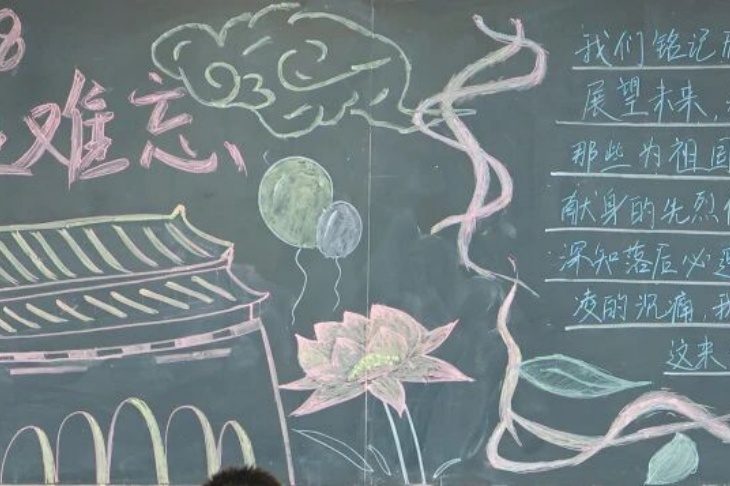 8
难忘
我们铭记
展望未来，
那些为祖国
献身的先烈
深知落后必
凌的沉痛，我
这来